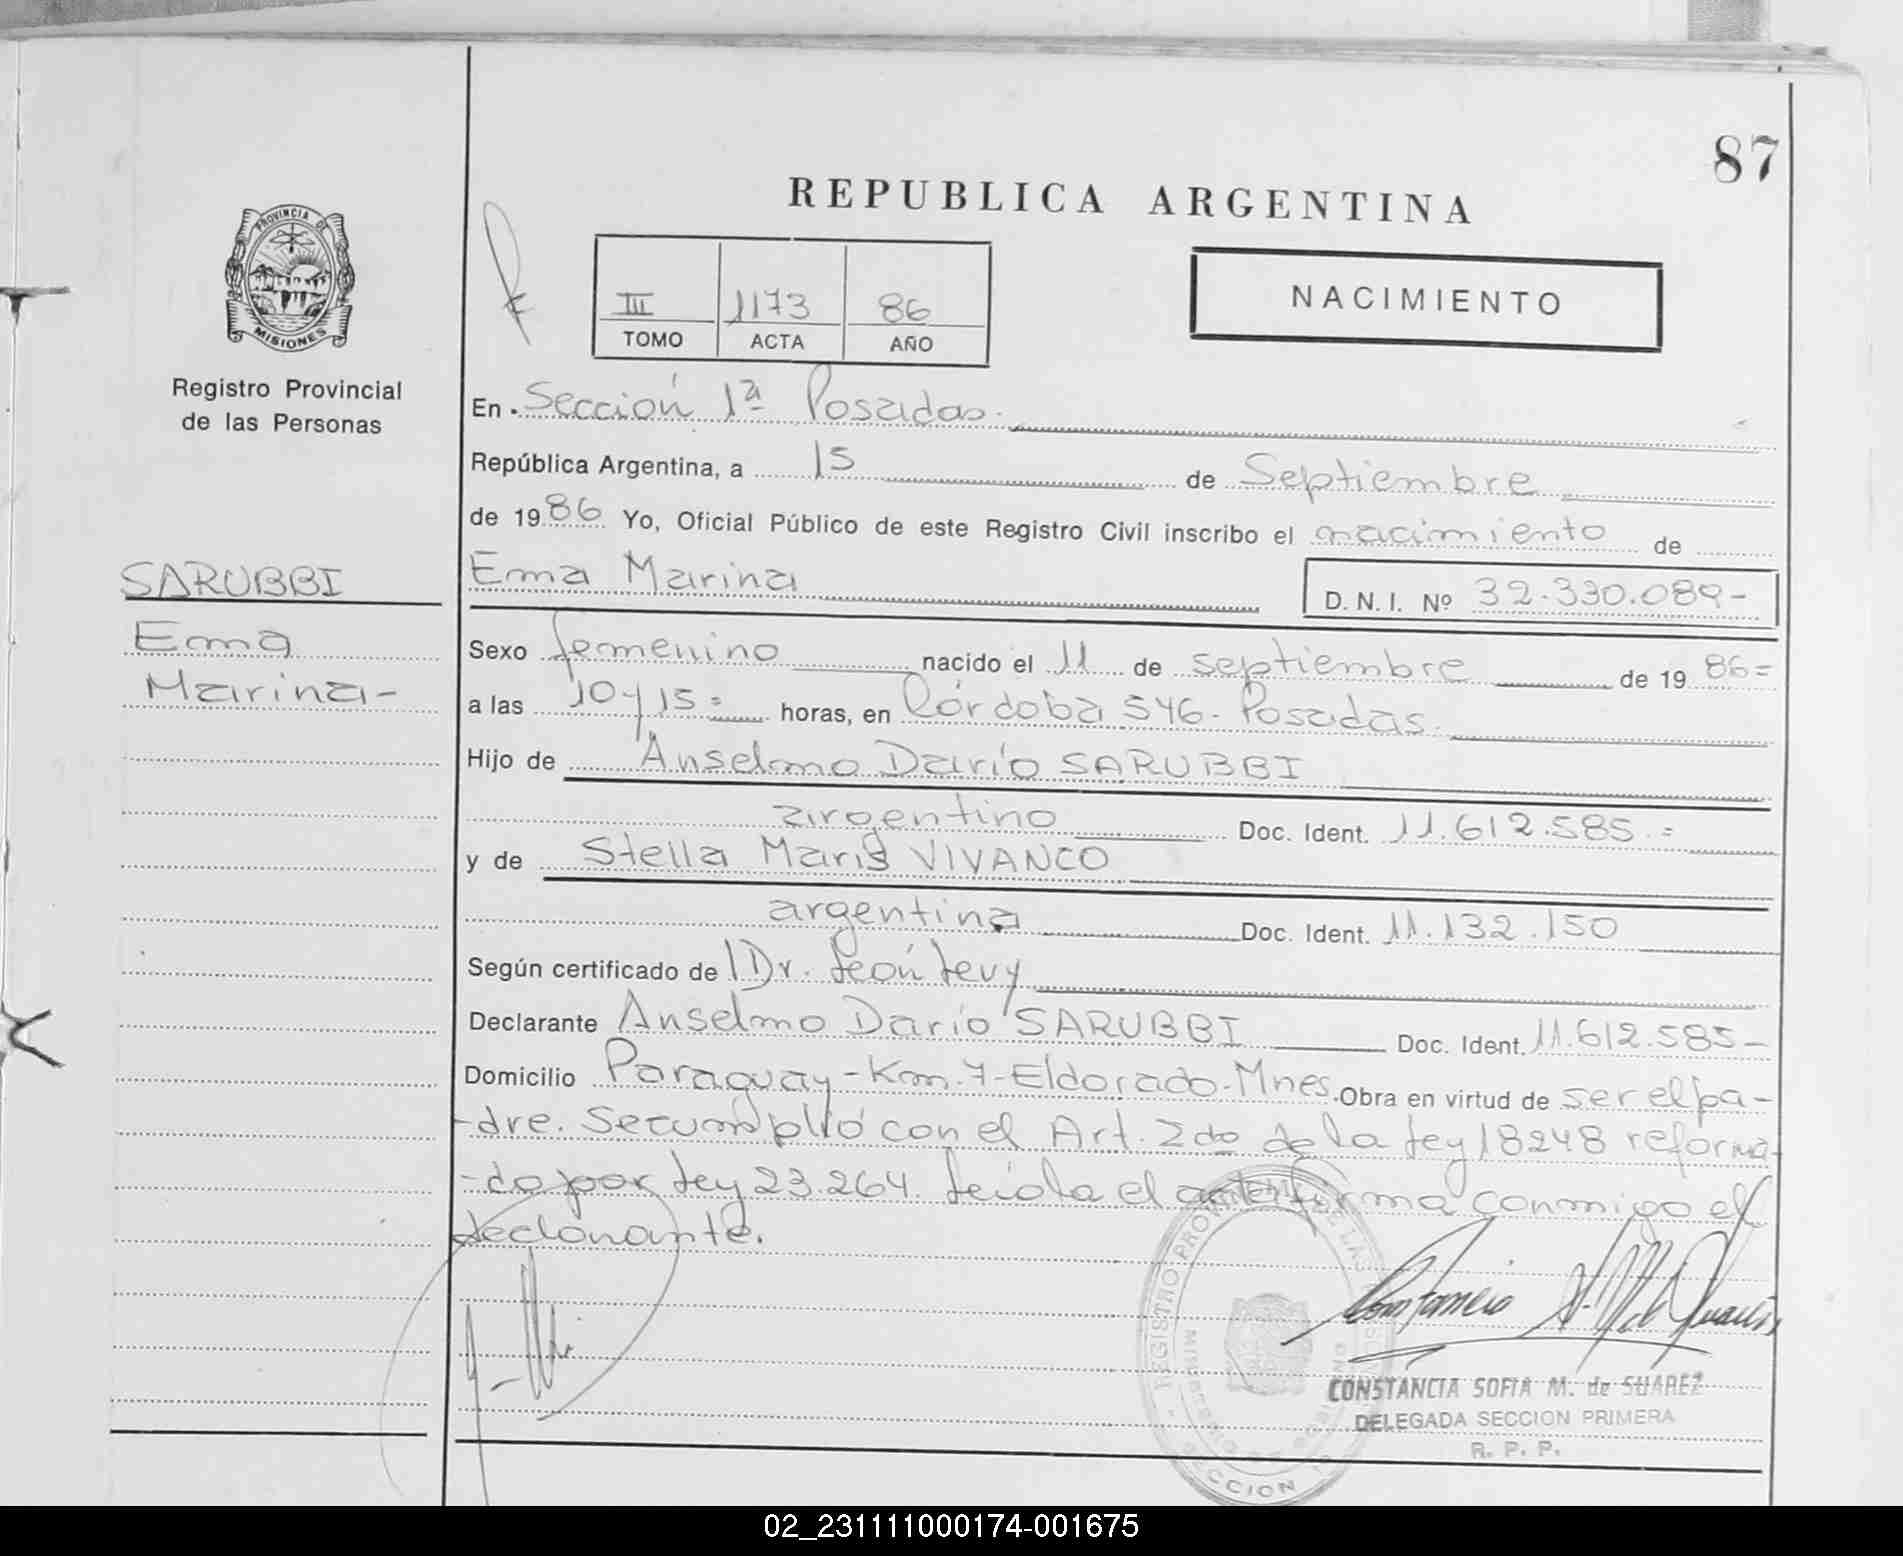 87
REPUBLICA ARGENTINA
PROVINCIA DE
MISIONES
Registro Provincial
de las Personas
III 1173 86
TOMO ACTA AÑO
NACIMIENTO
En Sección 1ª Posadas.
República Argentina, a 15 de Septiembre
de 1986 Yo, Oficial Público de este Registro Civil inscribo el nacimiento de
SARUBBI
Ema
Marina-
Ema Marina D. N. I. Nº 32.330.089-
Sexo femenino nacido el 11 de septiembre de 1986=
a las 10 y 15= horas, en Córdoba 546. Posadas.
Hijo de Anselmo Darío SARUBBI
argentino Doc. Ident. 11.612.585.=
y de Stella Maris VIVANCO
argentina Doc. Ident. 11.132.150
Según certificado de Dr. León Levy
Declarante Anselmo Darío SARUBBI Doc. Ident. 11.612.585-
Domicilio Paraguay-Km.7-Eldorado-Mnes. Obra en virtud de ser el pa-
-dre. Se cumplió con el Art. 2do de la Ley 18248 reforma-
-do por Ley 23.264. Leída el acta firma conmigo el
declarante.
CONSTANCIA SOFIA M. de SUAREZ
DELEGADA SECCION PRIMERA
R. P. P.
02_231111000174-001675